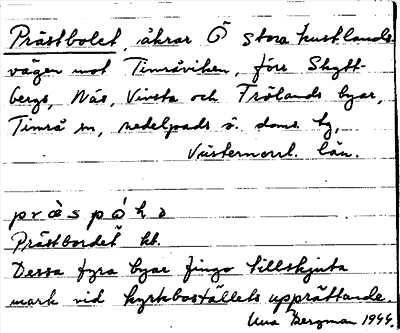 Prästbolet, åkrar Ö stora kustlands-
vägen mot Timråviken, förr Skytt-
bergs, Näs, Vivsta och Frölands byar,
Timrå sn, Medelpads ö. doms. tg,
Västernorrl. län.
Prästbordet kb.
Dessa fyra byar fingo tillskjuta
mark vid kyrkboställets upprättande.
Bergman 1944.